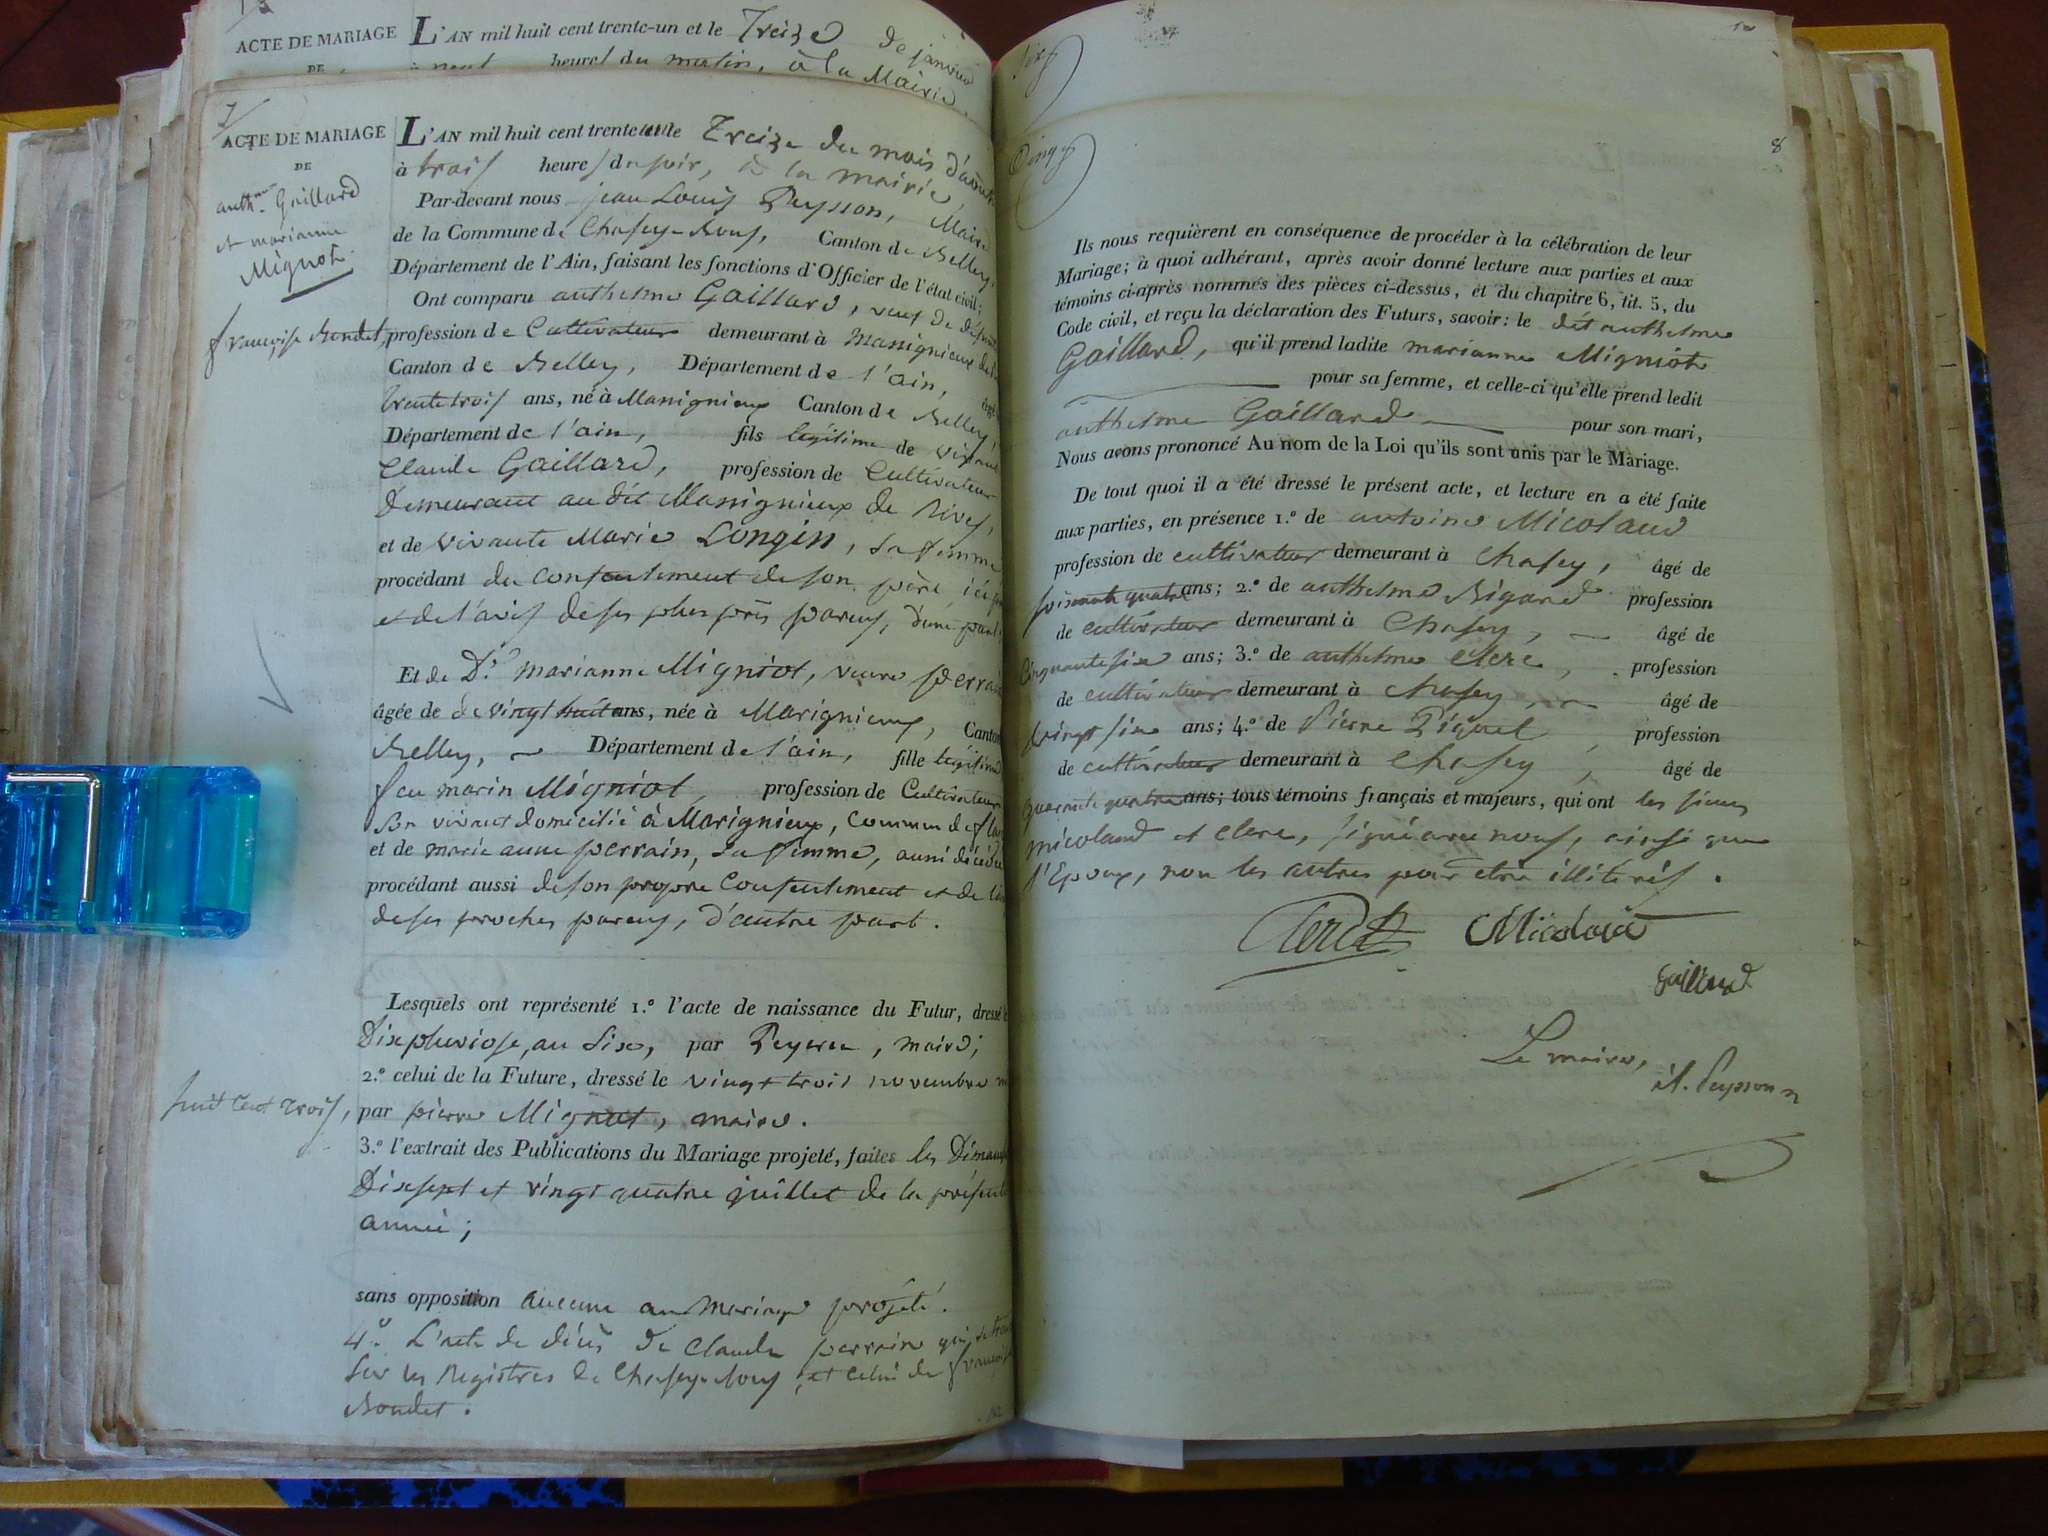 ACTE DE MARIAGE
DE
L'AN mil huit cent trente-un et le Treize de janvier
heures du matin, à la Mairie
7/
ACTE DE MARIAGE
DE
anthme Gaillard
et marianne
Mignot.
L'AN mil huit cent trente un le Treize du mois d'août
à trois heures du soir, à la mairie
Par-devant nous jean Louis Peysson, Maire
de la Commune de Chasey-Bons, Canton de Belley,
Département de l'Ain, faisant les fonctions d'Officier de l'état civil;
Ont comparu anthelme Gaillard, veuf de
françoise Bondet, profession de Cultivateur demeurant à Massignieux de
Canton de Belley, Département de l'ain, âgé
trente trois ans, né à Massignieux Canton de Belley,
Département de l'ain, fils légitime de vivant
Claude Gaillard, profession de Cultivateur
Demeurant au dit Massignieux de Rives,
et de vivante Marie Longin, sa femme
procédant du consentement de son père ici
et de l'avis de ses plus près parens, d'une part.
Et de De. marianne Migniot, veuve perrain
âgée de de vingt huit ans, née à Marignieux, Canton
Belley, Département de l'ain, fille légitime
feu marin Migniot, profession de Cultivateur
Son vivant domicilié à Marignieux, Commune de
et de marie anne perrain, sa femme, aussi décédée
procédant aussi de son propre consentement et de
de ses proches parens, d'autre part.
Lesquels ont représenté 1.º l'acte de naissance du Futur, dressé le
Dix pluviose, an Six, par Peysson, maire;
2.º celui de la Future, dressé le vingt trois novembre
huit cent trois, par pierre Mignot, maire.
3.º l'extrait des Publications du Mariage projeté, faites les Dimanches
Dix sept et vingt quatre juillet de la présente
année;
sans opposition aucune au Mariage projeté.
4.º L'acte de décès de Claude perrain qui
Sur les Registres de Chasey-Bons, et celui de françoise
Bondet.
8
Ils nous requièrent en conséquence de procéder à la célébration de leur
Mariage; à quoi adhérant, après avoir donné lecture aux parties et aux
témoins ci-après nommés des pièces ci-dessus, et du chapitre 6, tit. 5, du
Code civil, et reçu la déclaration des Futurs, savoir: le dit anthelme
Gaillard, qu'il prend ladite marianne Migniot
pour sa femme, et celle-ci qu'elle prend ledit
anthelme Gaillard pour son mari,
Nous avons prononcé Au nom de la Loi qu'ils sont unis par le Mariage.
De tout quoi il a été dressé le présent acte, et lecture en a été faite
aux parties, en présence 1.º de antoine Micolaud
profession de cultivateur demeurant à Chasey, âgé de
soixante quatre ans; 2.º de anthelme Rigard profession
de cultivateur demeurant à Chasey, âgé de
Cinquante six ans; 3.º de anthelme Clerc, profession
de cultivateur demeurant à Chasey, âgé de
vingt six ans; 4.º de Pierre Piquet, profession
de cultivateur demeurant à Chasey, âgé de
quarante quatre ans; tous témoins français et majeurs, qui ont les sieurs
micolaud et clerc, signé avec nous, ainsi que
l'Epoux, non les autres pour être illitérés.
Clerc Micolaud
Gaillard
Le maire,
jl. Peysson